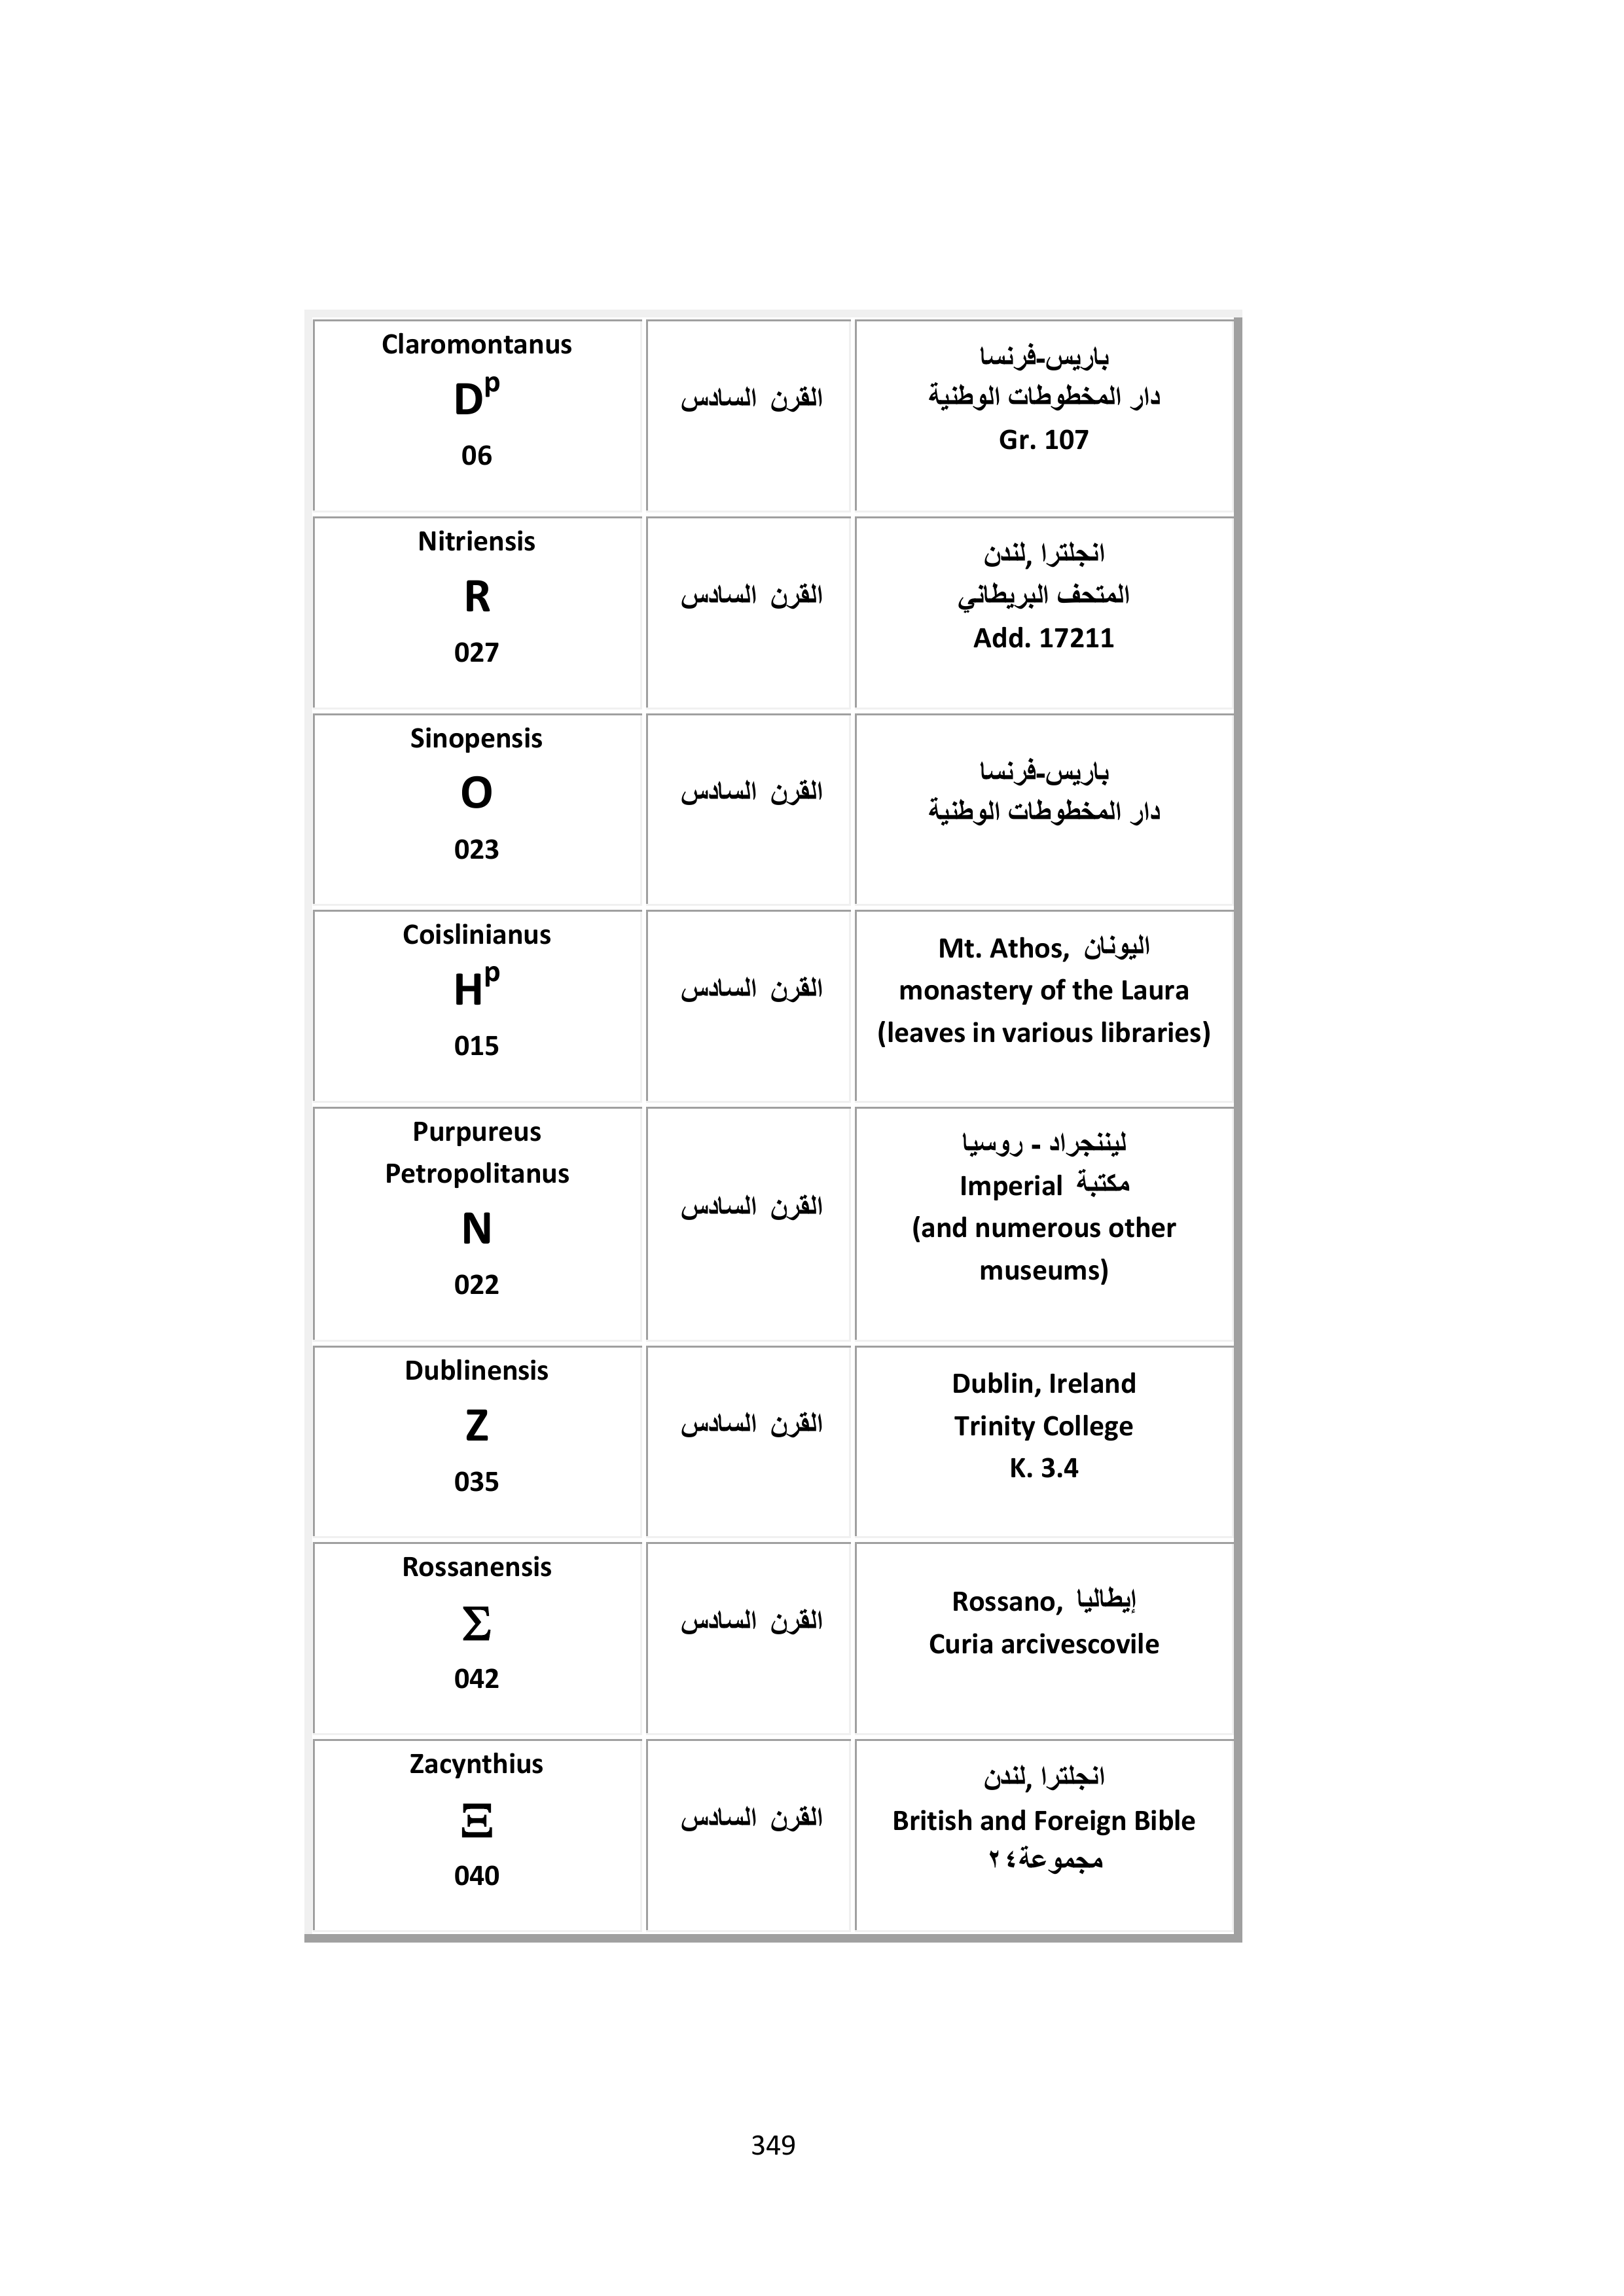 Claromontanus
Dᵖ
06
القرن السادس
باريس-فرنسا
دار المخطوطات الوطنية
Gr. 107
Nitriensis
R
027
القرن السادس
انجلترا ,لندن
المتحف البريطاني
Add. 17211
Sinopensis
O
023
القرن السادس
باريس-فرنسا
دار المخطوطات الوطنية
Coislinianus
Hᵖ
015
القرن السادس
Mt. Athos, اليونان
monastery of the Laura
(leaves in various libraries)
Purpureus
Petropolitanus
N
022
القرن السادس
ليننجراد - روسيا
Imperial مكتبة
(and numerous other
museums)
Dublinensis
Z
035
القرن السادس
Dublin, Ireland
Trinity College
K. 3.4
Rossanensis
Σ
042
القرن السادس
Rossano, إيطاليا
Curia arcivescovile
Zacynthius
Ξ
040
القرن السادس
انجلترا ,لندن
British and Foreign Bible
مجموعة٢٤
349